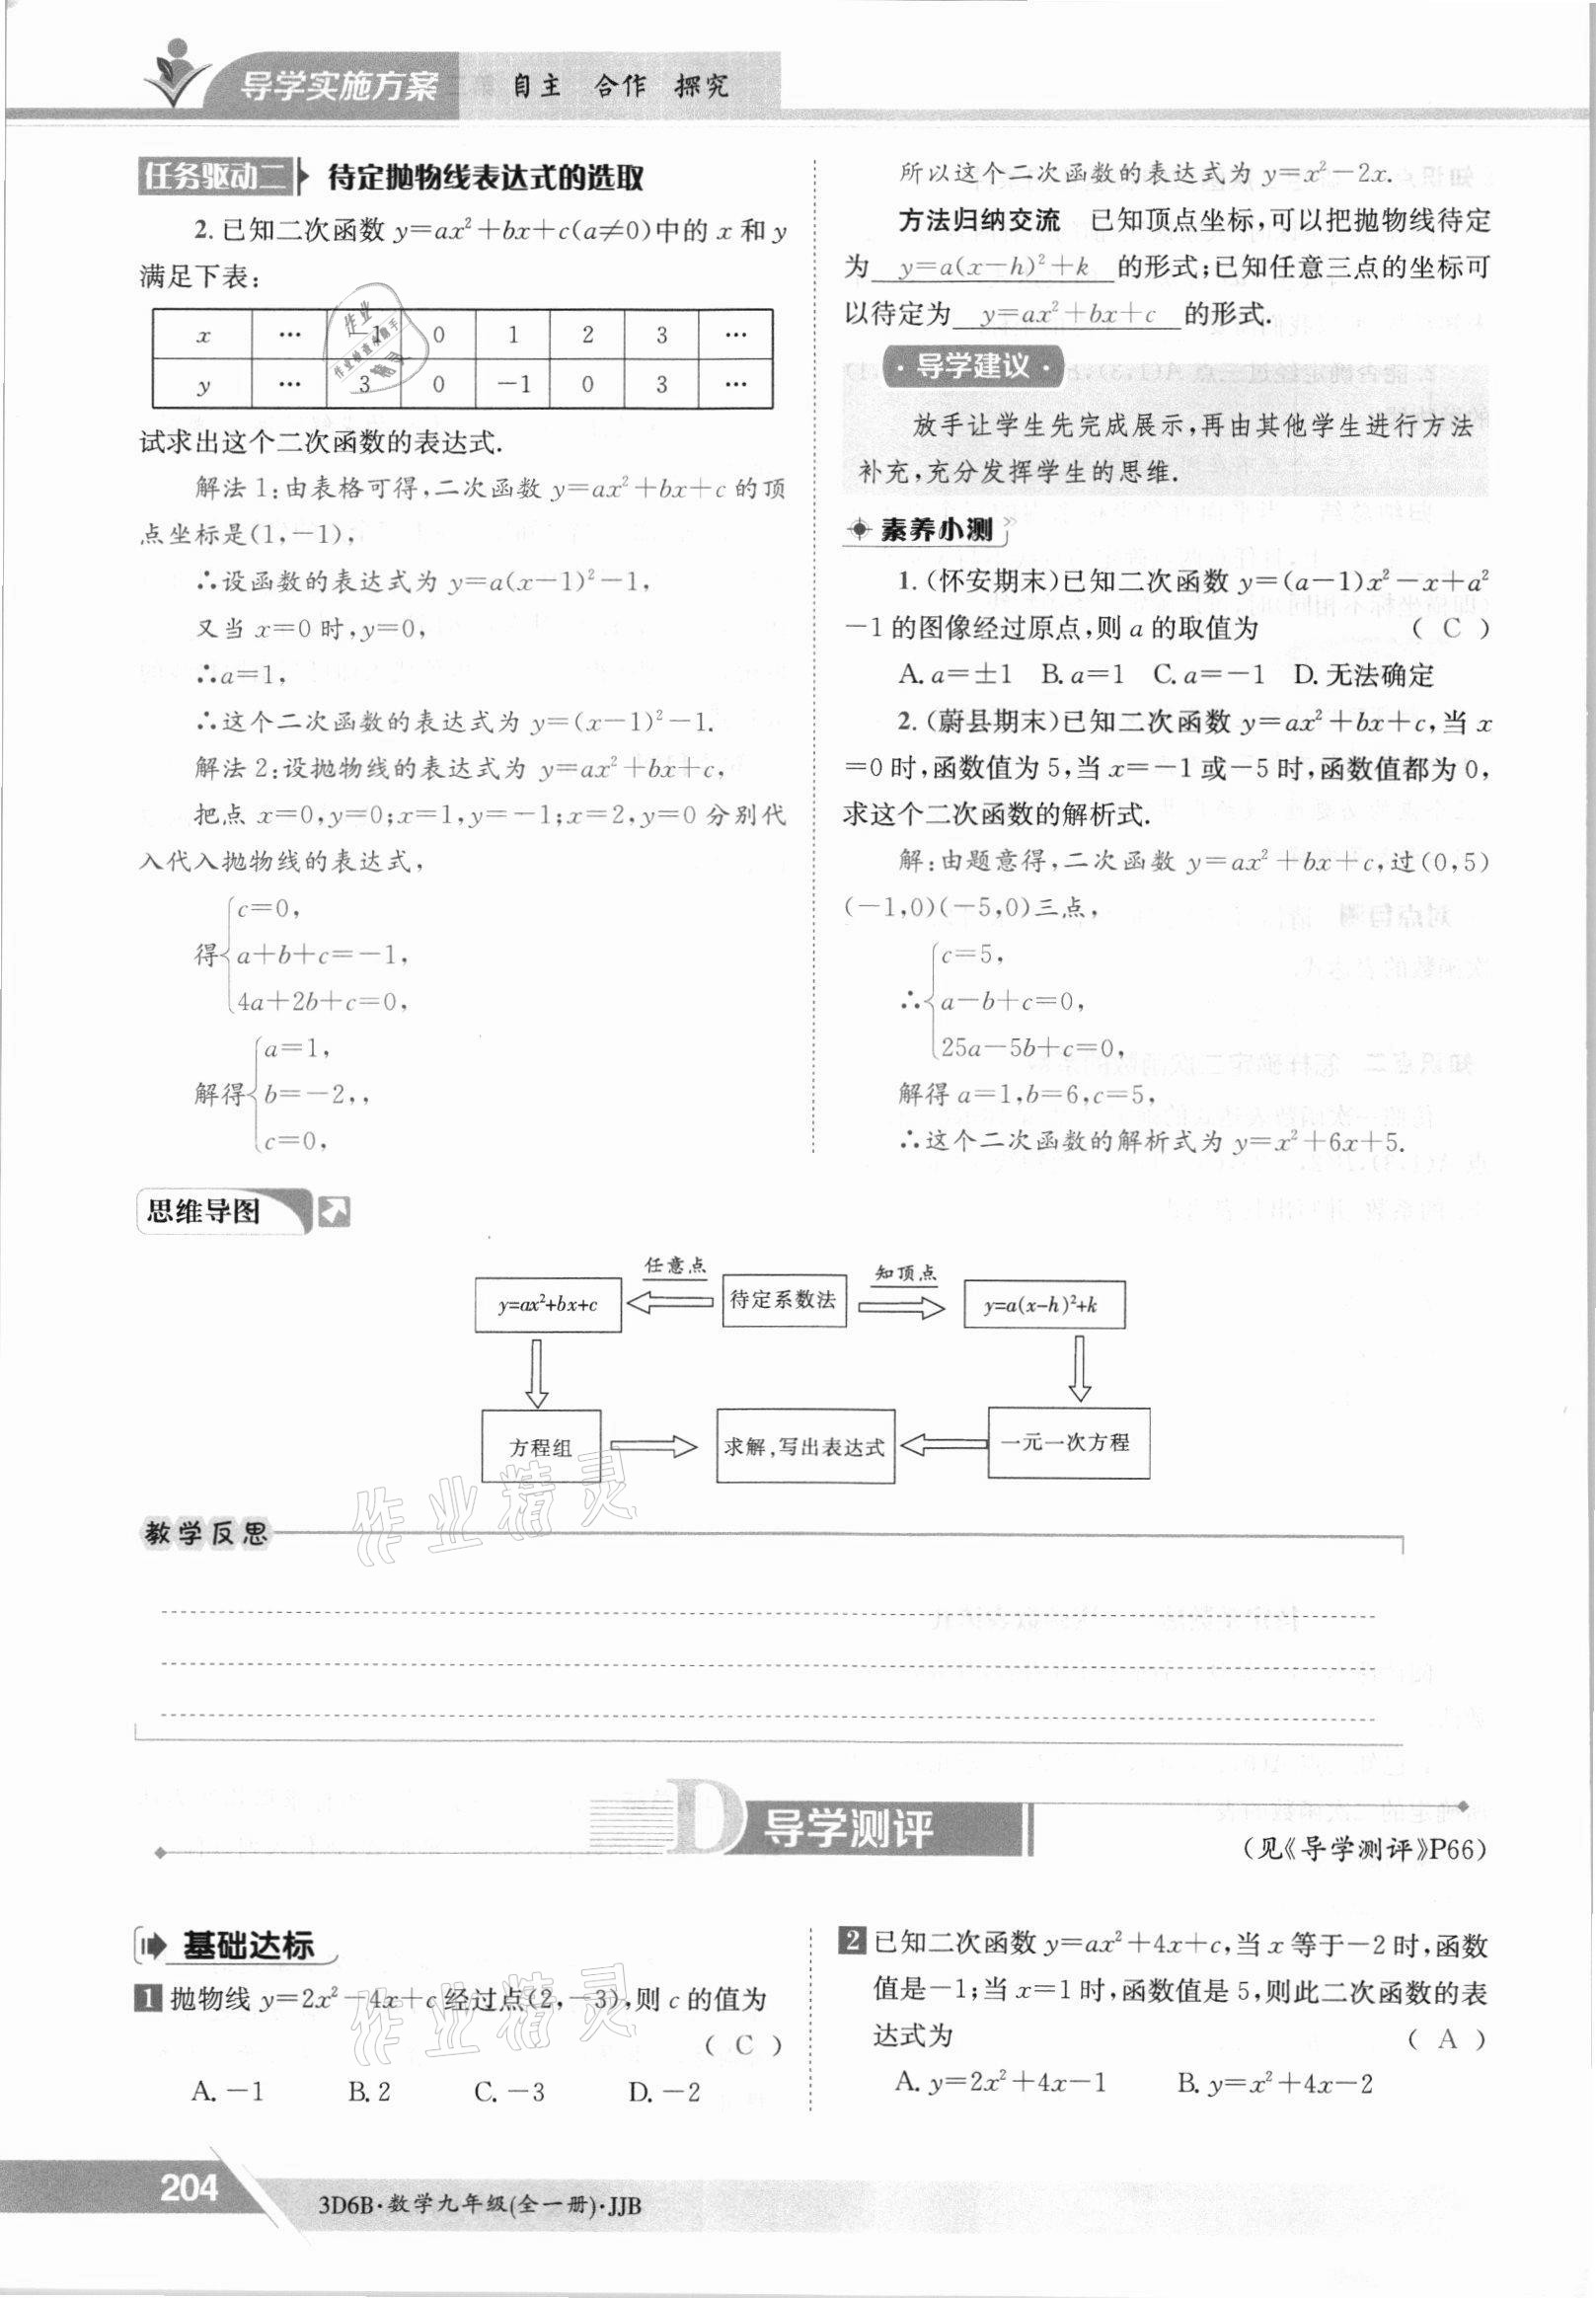 导学实施方案 自主 合作 探究
任务驱动二 待定抛物线表达式的选取
2. 已知二次函数 y=ax²+bx+c(a≠0)中的 x 和 y
满足下表:
x … -1 0 1 2 3 …
y … 3 0 -1 0 3 …
试求出这个二次函数的表达式.
解法 1:由表格可得,二次函数 y=ax²+bx+c 的顶
点坐标是(1,-1),
∴设函数的表达式为 y=a(x-1)²-1,
又当 x=0 时,y=0,
∴a=1,
∴这个二次函数的表达式为 y=(x-1)²-1.
解法 2:设抛物线的表达式为 y=ax²+bx+c,
把点 x=0,y=0;x=1,y=-1;x=2,y=0 分别代
入代入抛物线的表达式,
c=0,
得{a+b+c=-1,
4a+2b+c=0,
a=1,
解得{b=-2,,
c=0,
所以这个二次函数的表达式为 y=x²-2x.
方法归纳交流 已知顶点坐标,可以把抛物线待定
为 y=a(x-h)²+k 的形式;已知任意三点的坐标可
以待定为 y=ax²+bx+c 的形式.
·导学建议·
放手让学生先完成展示,再由其他学生进行方法
补充,充分发挥学生的思维.
素养小测
1. (怀安期末)已知二次函数 y=(a-1)x²-x+a²
-1 的图像经过原点,则 a 的取值为 ( C )
A. a=±1 B. a=1 C. a=-1 D. 无法确定
2. (蔚县期末)已知二次函数 y=ax²+bx+c,当 x
=0 时,函数值为 5,当 x=-1 或-5 时,函数值都为 0,
求这个二次函数的解析式.
解:由题意得,二次函数 y=ax²+bx+c,过(0,5)
(-1,0)(-5,0)三点,
c=5,
∴{a-b+c=0,
25a-5b+c=0,
解得 a=1,b=6,c=5,
∴这个二次函数的解析式为 y=x²+6x+5.
思维导图
任意点 知顶点
y=ax²+bx+c 待定系数法 y=a(x-h)²+k
方程组 求解,写出表达式 一元一次方程
作业精灵
教学反思
D 导学测评
(见《导学测评》P66)
基础达标
1 抛物线 y=2x²-4x+c 经过点(2,-3),则 c 的值为
( C )
A. -1 B. 2 C. -3 D. -2
作业精灵
2 已知二次函数 y=ax²+4x+c,当 x 等于-2 时,函数
值是-1;当 x=1 时,函数值是 5,则此二次函数的表
达式为 ( A )
A. y=2x²+4x-1 B. y=x²+4x-2
204
3D6B·数学九年级(全一册)·JJB